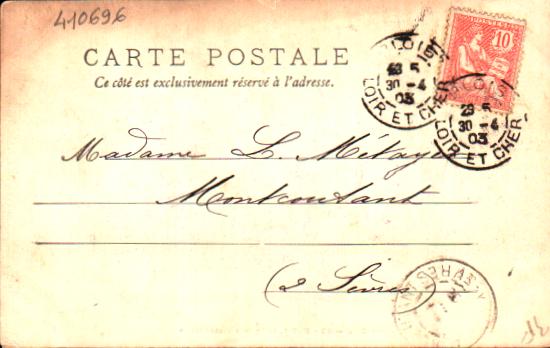 410696
CARTE POSTALE
Ce côté est exclusivement réservé à l'adresse.
POSTES
10
BLOIS
23 5
30 -4
03
LOIR ET CHER
BLOIS
23 5
30 -4
03
LOIR ET CHER
Madame L. Métayer
Montcoutant
(2 Sèvres)